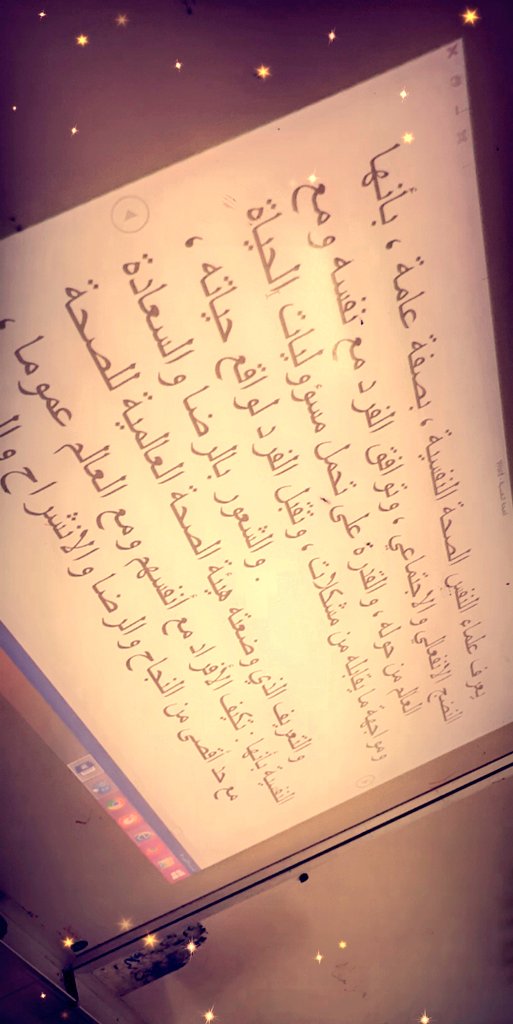 يعرف علماء النفس الصحة النفسية ، بصفة عامة ، بأنها
النضج الانفعالي والاجتماعي ، وتوافق الفرد مع نفسه ومع
العالم من حوله ، والقدرة على تحمل مسؤوليات الحياة
ومواجهة ما يقابله من مشكلات ، وتقبل الفرد لواقع حياته ،
والشعور بالرضا والسعادة .
والتعريف الذي وضعته هيئة الصحة العالمية للصحة
النفسية بأنها : تكيف الأفراد مع أنفسهم ومع العالم عموما ،
مع حد أقصى من النجاح والرضا والانشراح